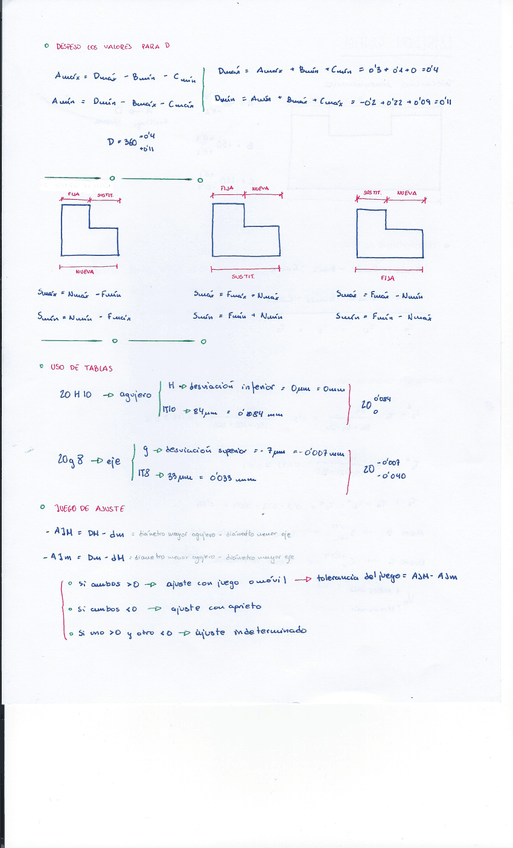 DESPEJO LOS VALORES PARA D
Amáx = Dmáx - Bmín - Cmín
Dmáx = Amáx + Bmín + Cmín = 0'3 + 0'1 + 0 = 0'4
Amín = Dmín - Bmáx - Cmáx
Dmín = Amín + Bmáx + Cmáx = -0'2 + 0'22 + 0'09 = 0'11
D = 360 +0'4 +0'11
FIJA SUSTIT.
FIJA NUEVA
SUSTIT. NUEVA
NUEVA
SUSTIT.
FIJA
Smáx = Nmáx - Fmín
Smáx = Fmáx + Nmáx
Smáx = Fmáx - Nmín
Smín = Nmín - Fmáx
Smín = Fmín + Nmín
Smín = Fmín - Nmáx
USO DE TABLAS
20 H 10 → agujero
H → desviación inferior = 0μm = 0mm
IT10 → 84μm = 0'084 mm
20 0'084 0
20 g 8 → eje
g → desviación superior = -7μm = -0'007 mm
IT8 → 33μm = 0'033 mm
20 -0'007 -0'040
JUEGO DE AJUSTE
- AJM = DM - dm = diámetro mayor agujero - diámetro menor eje
- AJm = Dm - dM = diámetro menor agujero - diámetro mayor eje
Si ambos >0 → ajuste con juego o móvil → tolerancia del juego = AJM - AJm
Si ambos <0 → ajuste con aprieto
Si uno >0 y otro <0 → ajuste indeterminado